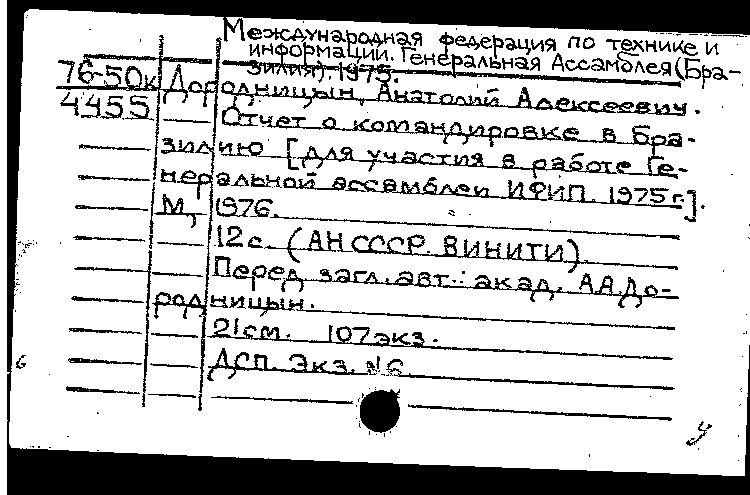 Международная федерация по технике и
информации. Генеральная Ассамблея (Бра-
зилия). 1975.
76-50к
4455
Дородницын, Анатолий Алексеевич.
Отчет о командировке в Бра-
зилию [для участия в работе Ге-
неральной ассамблеи ИФИП. 1975 г.].
М, 1976.
12 с. (АН СССР. ВИНИТИ).
Перед загл. авт.: акад. А.А. До-
родницын.
21 см. 107 экз.
ДСП. Экз. №6
6
у